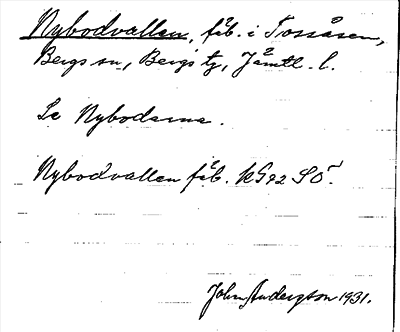 Nybodvallen, fäb. i Tossåsen,
Bergs sn, Bergs tg, Jämtl. l.
Se Nybodarna.
Nybodvallen fäb. kG92 SÖ.
John Andersson 1931.